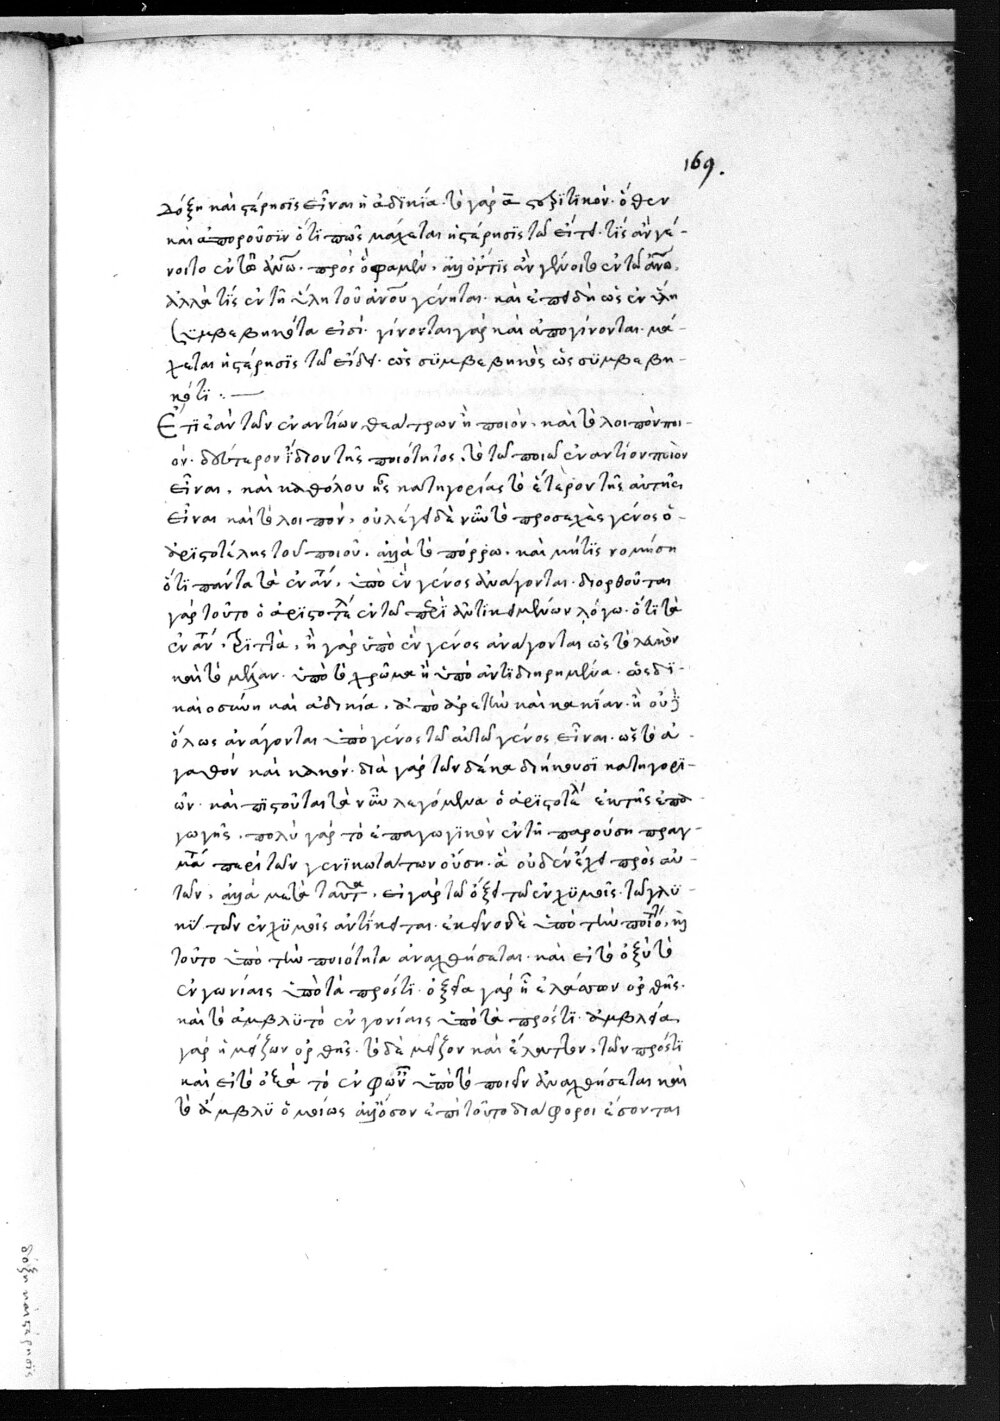 169.
δόξη καὶ στέρησϊς εἶναι ἡ ἀδικία. τὸ γὰρ ᾱ στερητικόν. ὅθεν
καὶ ἀποροῦσϊν ὅτι πῶς μάχεται ἡ στέρησϊς τῶ εἴδει. τίς ἂν γέ-
νοιτο ἐν τῶ ἀνω. πρὸς ὃ φαμὲν, ἀλλ' οὔτις ἂν γένοιτο ἐν τῶ ἀνω.
ἀλλὰ τίς ἐν τῆ ὕλη τοῦ ἀνου γένηται. καὶ ἐπειδὴ ὡς ἐν ὕλη
συμβεβηκότα εἰσί. γίνονται γὰρ καὶ ἀπογίνονται. μά-
χεται ἡ στέρησϊς τῶ εἴδει. ὡς σϋμβεβηκὸς ὡς σϋμβεβη-
κότϊ :—
Ἔτι ἐὰν τῶν ἐναντίων θεάτρων ἦ ποιόν. καὶ τὸ λοιπὸν ποι-
όν. δεύτερον ἴδιον τῆς ποιότητος, τὸ τῶ ποιῶ ἐναντίον ποιὸν
εἶναι, καὶ καθόλου ἧς κατηγορίας τὸ ἕτερον τῆς αὐτῆς
εἶναι καὶ τὸ λοιπόν, οὐ λέγει δὲ νῦν τὸ προσεχὲς γένος ὁ
ἀρϊστοτέλης τοῦ ποιοῦ. ἀλλὰ τὸ πόρρω. καὶ μήτϊς νομίση
ὅτι πάντα τὰ ἐναν, ὑπὸ ἓν γένος ἀνάγονται. διορθοῦται
γὰρ τοῦτο ὁ ἀρϊστοτε ἐν τῶ περὶ ἀντικειμένων λόγω. ὅτι τὰ
ἐναν, τρϊττὰ, ἢ γὰρ ὑπὸ ἓν γένος ἀνάγονται ὡς τὸ λευκὸν
καὶ τὸ μέλαν. ὑπὸ τὸ χρῶμα ἢ ὑπὸ ἀντιδιηρημένα. ὡς δϊ-
καιοσύνη καὶ ἀδικία, ὑπὸ ἀρετὴν καὶ κακίαν. ἢ οὐχ
ὅλως ἀνάγονται ὑπὸ γένος τῶ αὐτῶ γένος εἶναι. ὡς τὸ ἀ-
γαθόν καὶ κακόν. διὰ γὰρ τῶν δέκα διήκουσϊ κατηγορϊ-
ῶν. καὶ πϊστοῦται τὰ νῦν λεγόμενα ὁ ἀρϊστοτε ἐκ τῆς ἐπα
γωγῆς. πολὺ γὰρ τὸ ἐπαγωγϊκὸν ἐν τῆ παρούση πραγ-
μα περὶ τῶν γενικωτάτων οὔση. ἃ οὐδὲν ἔχει πρὸς αὐ-
τῶν, ἀλλὰ μετὰ ταῦτα, εἰ γὰρ τῶ ὀξεῖ τῶ ἐν χϋμοῖς. τῶ γλυ-
κεῖ τῶν ἐν χϋμοῖς ἀντίκειται. ἐκεῖνο δὲ ὑπὸ τὴν ποιο, καὶ
τοῦτο ὑπὸ τὴν ποιότητα ἀναχθήσεται. καὶ εἰ τὸ ὀξὺ τὸ
ἐν γωνίαις ὑπὸ τὰ πρόστϊ. ὀξεῖα γὰρ ἡ ἐλάττων ὀρθῆς.
καὶ τὸ ἀμβλϋ τὸ ἐν γονίαις ὑπὸ τὰ πρόστϊ. ἀμβλεῖα
γὰρ ἡ μείζων ὀρθῆς. τὸ δὲ μεῖζον καὶ ἔλαττον, τῶν πρόστϊ
καὶ εἰ τὸ ὀξὺ τὸ ἐν φωνῆ ὑπὸ τὸ ποιὸν ἀναχθήσεται καὶ
τὸ ἀμβλϋ ὁμοίως ἀλλ' ὅσον ἐπὶ τοῦτο διάφοροι ἔσονται
δόξη καὶ στέρησϊς